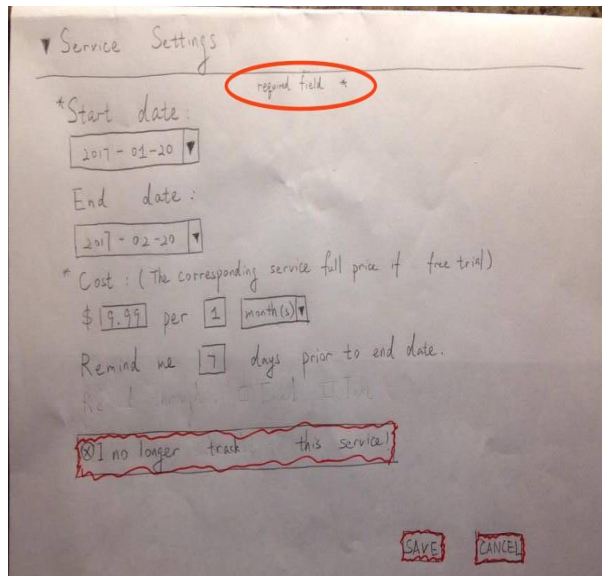 ▼ Service Settings
required field *
*Start date:
2017-01-20 ▼
End date:
2017-02-20 ▼
* Cost: (The corresponding service full price if free trial)
$ 9.99 per 1 month(s) ▼
Remind me 7 days prior to end date.
ⓧ I no longer track this service!
SAVE CANCEL